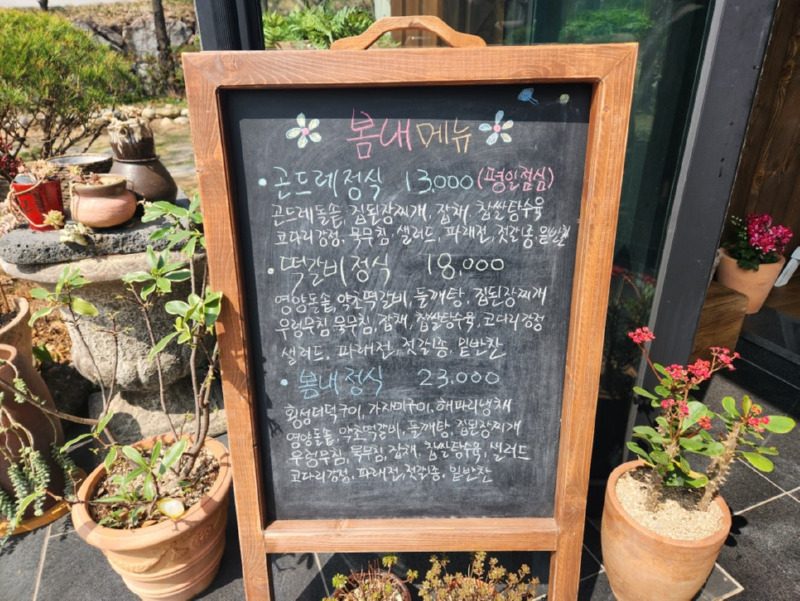 봄내메뉴
• 곤드레정식 13,000 (평일점심)
곤드레돌솥, 집된장찌개, 잡채, 찹쌀탕수육
코다리강정, 묵무침, 샐러드, 파래전, 젓갈종, 밑반찬
• 떡갈비정식 18,000
영양돌솥, 약초떡갈비, 들깨탕, 집된장찌개
우렁무침, 묵무침, 잡채, 찹쌀탕수육, 코다리강정
샐러드, 파래전, 젓갈종, 밑반찬
• 봄내정식 23.000
횡성더덕구이, 가자미구이, 해파리냉채
영양돌솥, 약초떡갈비, 들깨탕, 집된장찌개
우렁무침, 묵무침, 잡채, 찹쌀탕수육, 샐러드
코다리강정, 파래전, 젓갈종, 밑반찬